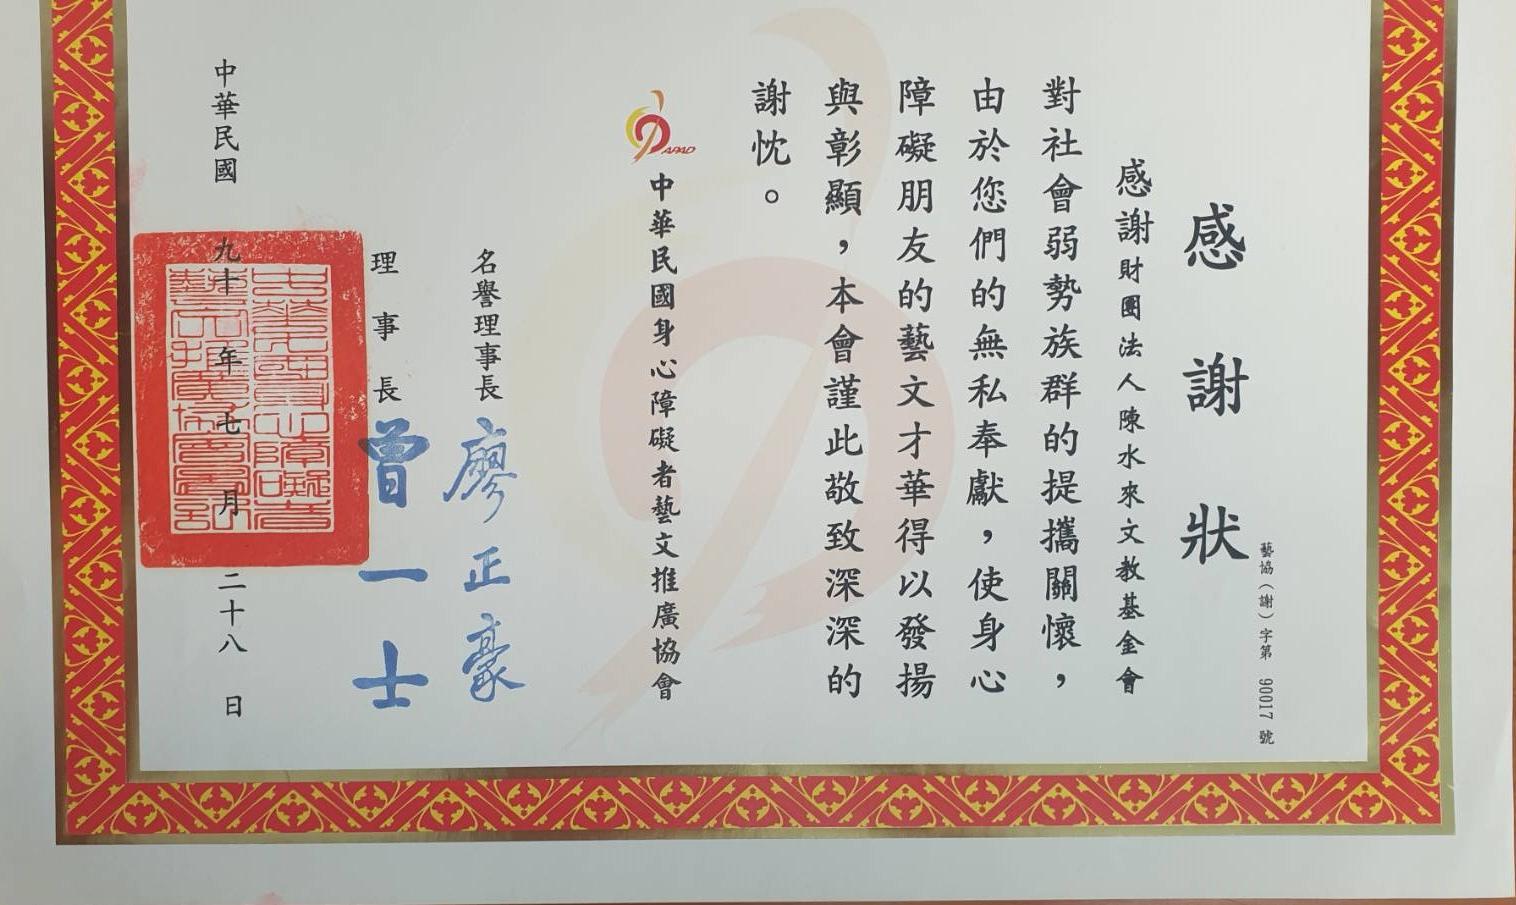 藝協（謝）字第 90017 號
感謝狀
感謝財團法人陳水來文教基金會
對社會弱勢族群的提攜關懷，
由於您們的無私奉獻，使身心
障礙朋友的藝文才華得以發揚
與彰顯，本會謹此敬致深深的
謝忱。
APAD
中華民國身心障礙者藝文推廣協會
名譽理事長 廖正豪
理事長 曾一士
中華民國 九十 年 七 月 二十八 日